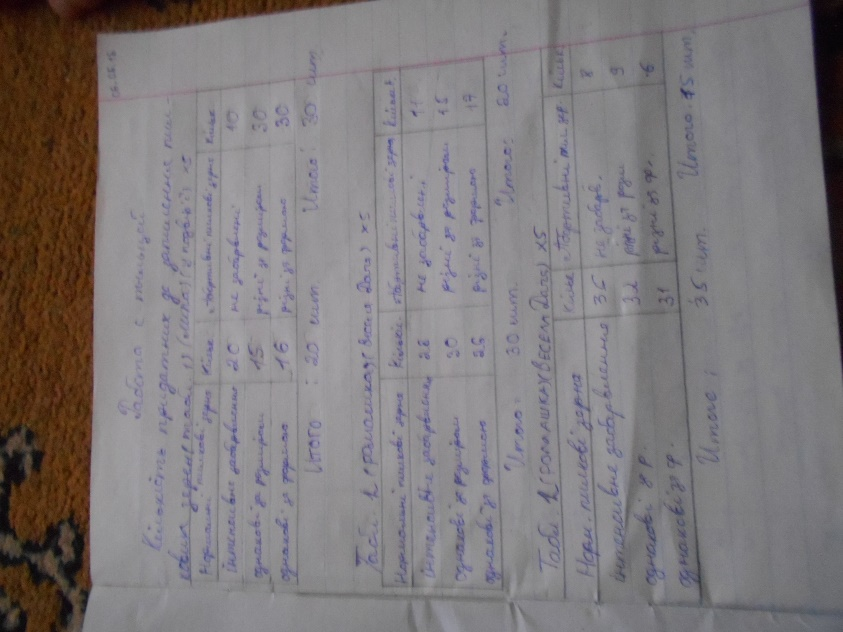 06.06.15
Работа с пыльцой
Кількість придатних до запилення пил-
кових зерен
Нормальні пилкові зерна Кільк Абортивні пилкові зерна Кільк
інтенсивно забарвленні 20 не забарвлені 10
однакові за розмірами 15 різні за розмірами 30
однакові за формою 16 різні за формою 30
Итого : 20 шт Итого : 30 шт.
Табл. 2 (Веселе Дата) x5
Нормальні пилкові зерна Кільк. Абортивні пилкові зерна Кільк
інтенсивне забарвлення 28 не забарвлені 11
однакові за розмірами 30 різні за розмірами 15
однакові за формою 26 різні за формою 17
Итого : 30 шт. Итого : 20 шт.
Табл. x5
Норм. пилкові зерна Кільк 8
інтенсивне забарвлення 36 не забарв. 9
однакові за р. 32 різні за розм 6
однакові за ф. 31 різні за ф.
Итого : 35 шт. Итого : 15 шт.